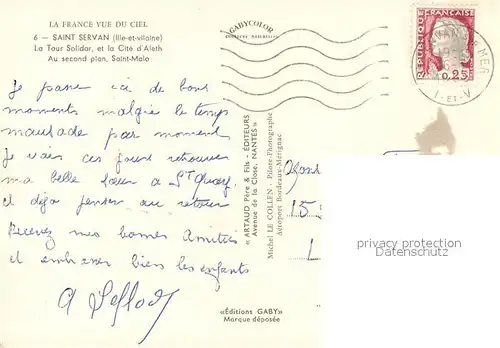 LA FRANCE VUE DU CIEL
6 - SAINT SERVAN (Ille-et-vilaine)
La Tour Solidor, et la Cité d'Aleth
Au second plan, Saint-Malo
GABYCOLOR
Je passe ici de bons
moments malgré le temps
maussade par moment
Je vais ces jours retrouver
ma belle sœur à St Quay
et déjà penser au retour
Recevez mes bonnes Amitiés
et embrasser bien les enfants
« ARTAUD Père & Fils - ÉDITEURS
Avenue de la Close, NANTES »
Michel LE COLLEN - Pilote-Photographe
Aéroport Bordeaux-Mérignac
«Éditions GABY»
Marque déposée
RÉPUBLIQUE FRANÇAISE
0,25
I-ET-V
15
L
privacy protection
Datenschutz